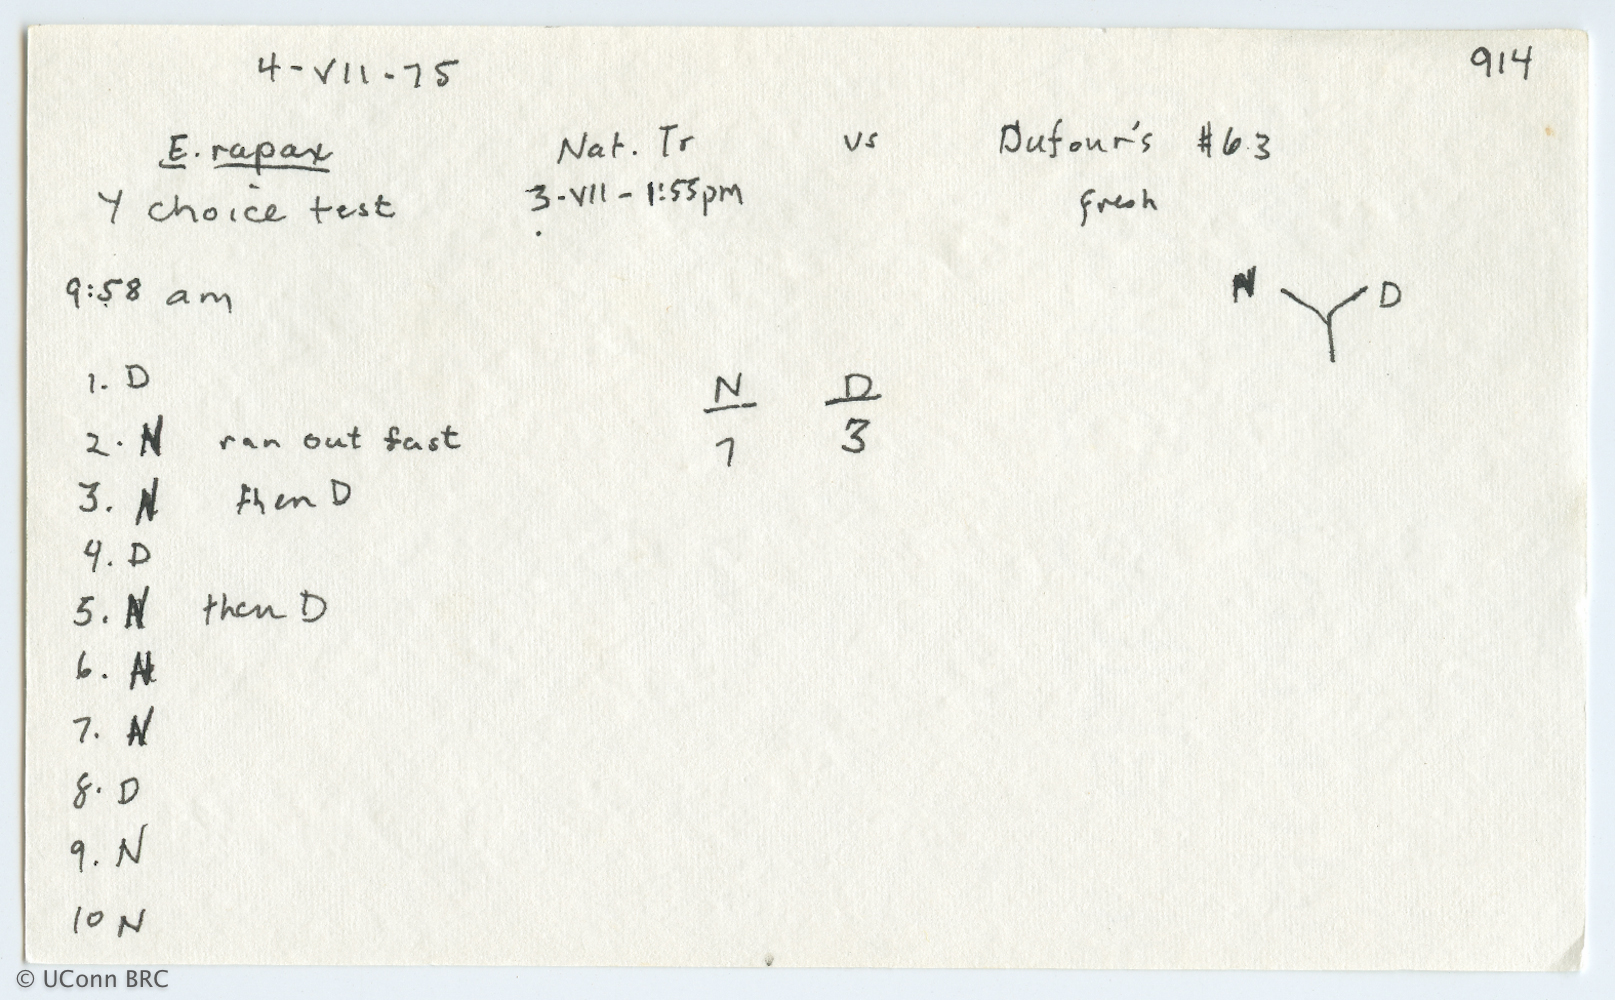 4-VII-75
914
E. rapax Nat. Tr vs Dufour's #63
Y choice test 3-VII-1:55pm fresh
9:58 am
N D
1. D
2. N ran out fast
3. N then D
4. D
5. N then D
6. N
7. N
8. D
9. N
10 N
N D
7 3
© UConn BRC